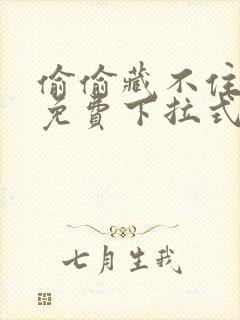 偷偷藏不住
免費下拉式
七月生我